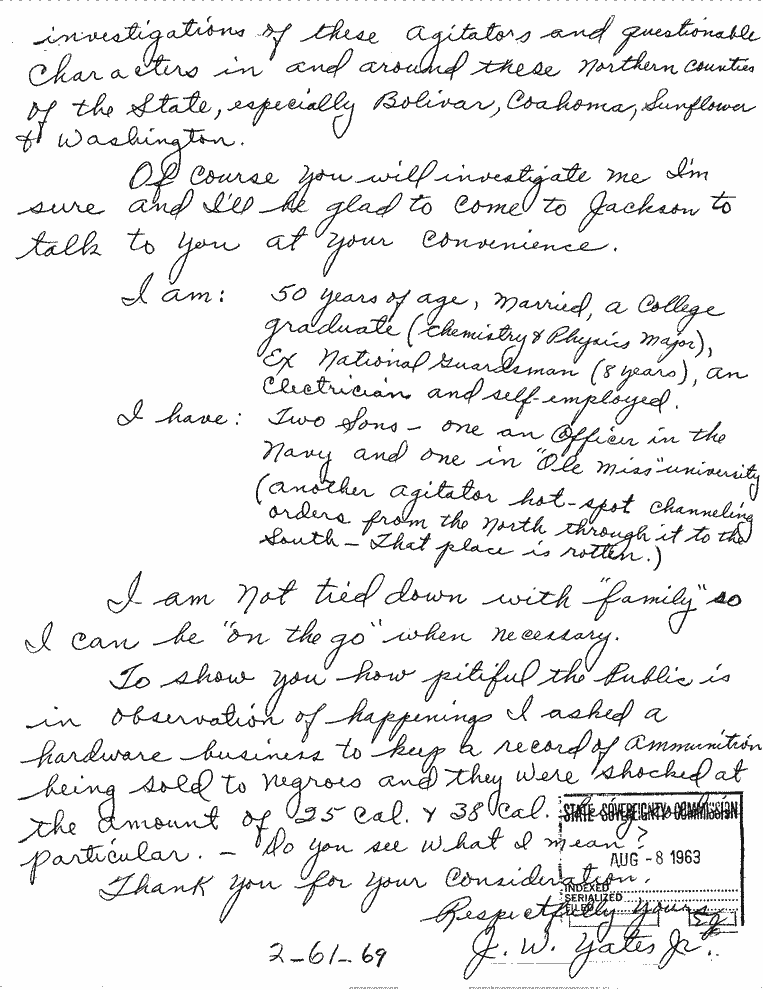 investigations of these agitators and questionable
characters in and around these Northern counties
of the State, especially Bolivar, Coahoma, Sunflower
& Washington.
Of course you will investigate me I'm
sure and I'll be glad to come to Jackson to
talk to you at your convenience.
I am: 50 years of age, married, a College
graduate (Chemistry & Physics Major),
Ex National Guardsman (8 years), an
Electrician and self-employed.
I have: Two Sons - one an Officer in the
Navy and one in "Ole Miss" university
(another agitator hot-spot channeling
orders from the North through it to the
South - That place is rotten.)
I am not tied down with "family" so
I can be "on the go" when necessary.
To show you how pitiful the Public is
in observation of happenings I asked a
hardware business to keep a record of ammunition
being sold to Negroes and they were shocked at
the amount of 25 Cal. & 38 Cal. being sold in
particular. - Do you see what I mean?
Thank you for your consideration.
Respectfully yours,
J. W. Yates Jr.
2-61-69
STATE SOVEREIGNTY COMMISSION
AUG -8 1963
INDEXED
SERIALIZED
FILED